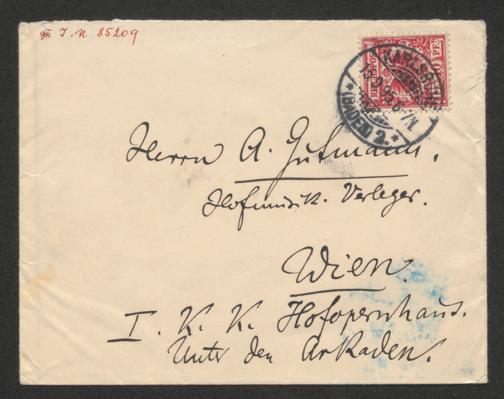 zu I.N. 85209
KARLSRUHE
(BADEN) 2.
Herrn A. Gutmann.
Hofmusik. Verleger.
Wien.
I. K. K. Hofopernhaus.
Unter den Arkaden.